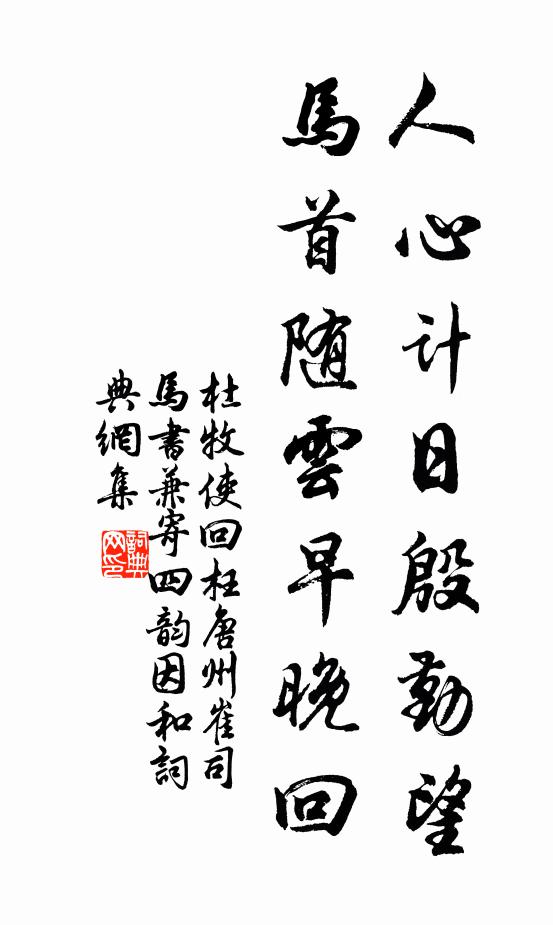 人心计日殷勤望
馬首随雲早晚回
杜牧使回枉唐州崔司
馬書兼寄四韵因和詞
典網集
詞典
网印